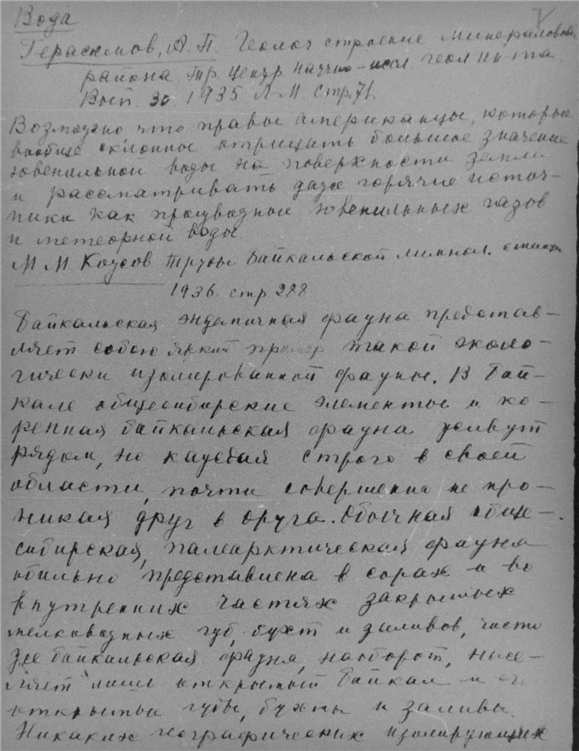 Вода
Герасимов, А. П. Геолог строение Минераловод.
района. Тр. Центр. Научно-иссл. геол ин та.
Вып 30 1935 Л М. стр. 71.
Возможно что правы американцы, которые
вообще склонны отрицать большое значение
ювенильной воды на поверхности земли
и рассматривать даже горячие источ-
ники как производные ювенильных газов
и метеорной воды.
М М. Кожов Труды Байкальской лимнол. станции
1936 стр 288
Байкальская эндемичная фауна представ-
ляет собою яркий пример такой эколо-
гически изолированной фауны. В Бай-
кале общесибирские элементы и ко-
ренная байкальская фауна живут
рядом, но каждая строго в своей
области, почти совершенно не про-
никая друг в друга. Обычная обще-
сибирская, палеарктическая фауна
обильно представлена в сорах и во
внутренних частях закрытых
мелководных губ, бухт и заливов, чисто
же байкальская фауна, наоборот, насе-
ляет лишь открытый Байкал и его
открытые губы, бухты и заливы.
Никаких географических изолирующих